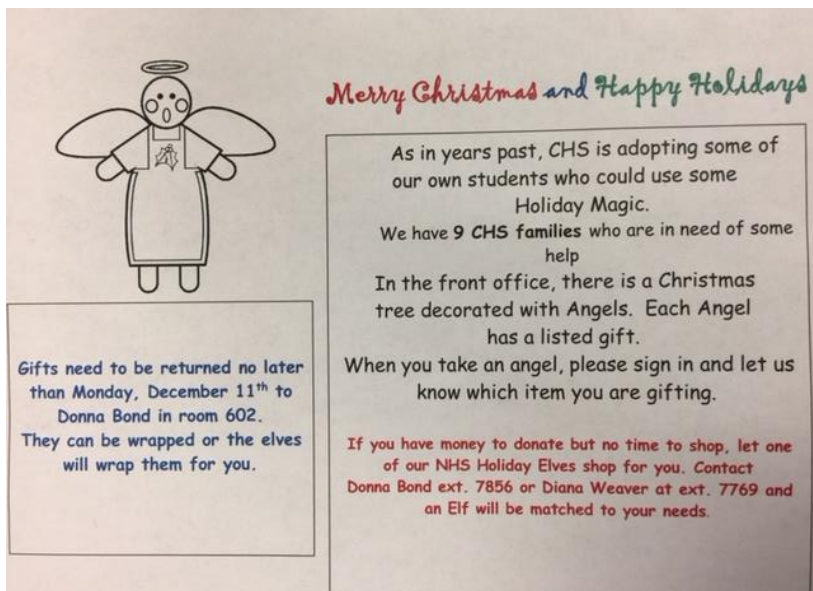 Merry Christmas and Happy Holidays
As in years past, CHS is adopting some of
our own students who could use some
Holiday Magic.
We have 9 CHS families who are in need of some
help
In the front office, there is a Christmas
tree decorated with Angels. Each Angel
has a listed gift.
When you take an angel, please sign in and let us
know which item you are gifting.
If you have money to donate but no time to shop, let one
of our NHS Holiday Elves shop for you. Contact
Donna Bond ext. 7856 or Diana Weaver at ext. 7769 and
an Elf will be matched to your needs.
Gifts need to be returned no later
than Monday, December 11th to
Donna Bond in room 602.
They can be wrapped or the elves
will wrap them for you.